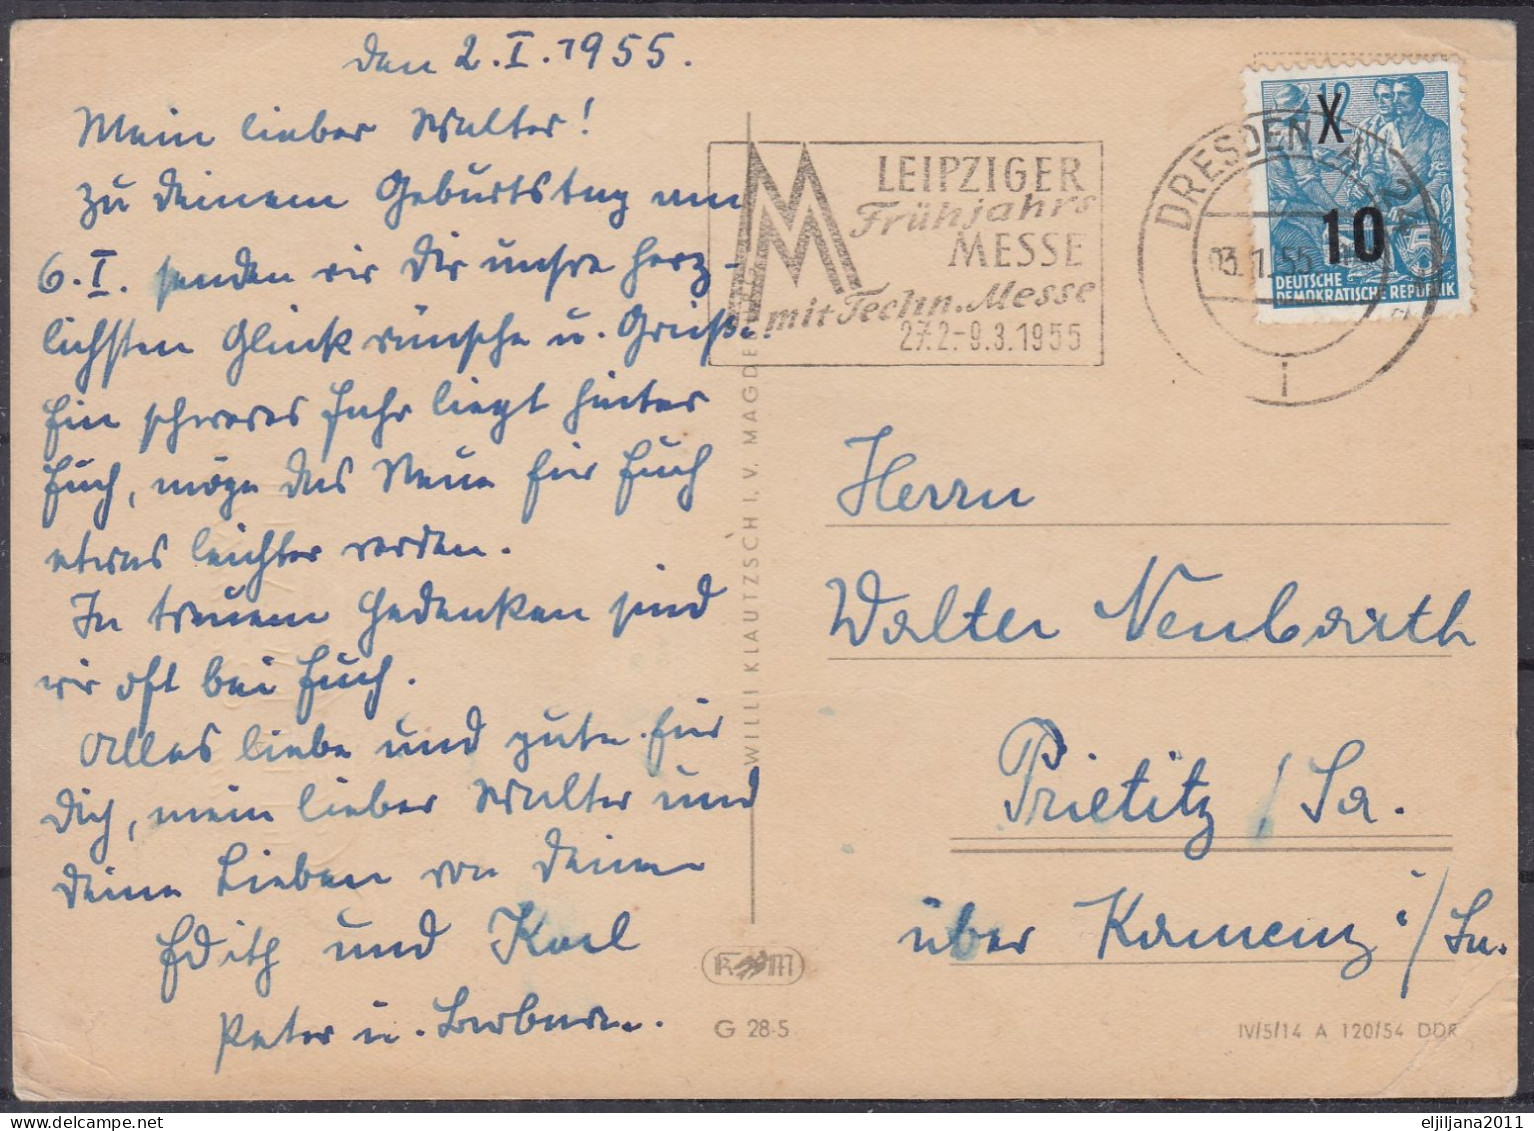 den 2.I.1955.
Mein lieber Walter!
Zu Deinem Geburtstag am
6.I. senden wir Dir unsre herz-
lichsten Glückwünsche u. Grüße.
Ein schweres Jahr liegt hinter
Euch, möge das Neue für Euch
etwas leichter werden.
In treuem Gedenken sind
wir oft bei Euch.
Alles liebe und gute für
Dich, mein lieber Walter und
Deine Lieben von Deinen
Edith und Karl
Peter u. Barbara.
WILLI KLAUTZSCH I. V. MAGDEBURG
LEIPZIGER
Frühjahrs
MESSE
mit Techn. Messe
27.2.-9.3.1955
DRESDEN A 24
03.1.55
i
12
X
10
5
DEUTSCHE
DEMOKRATISCHE REPUBLIK
Herrn
Walter Neubarth
Prietitz / Sa.
über Kamenz i/Sa.
G 28-5
IV/5/14 A 120/54 DDR
eljiljana2011